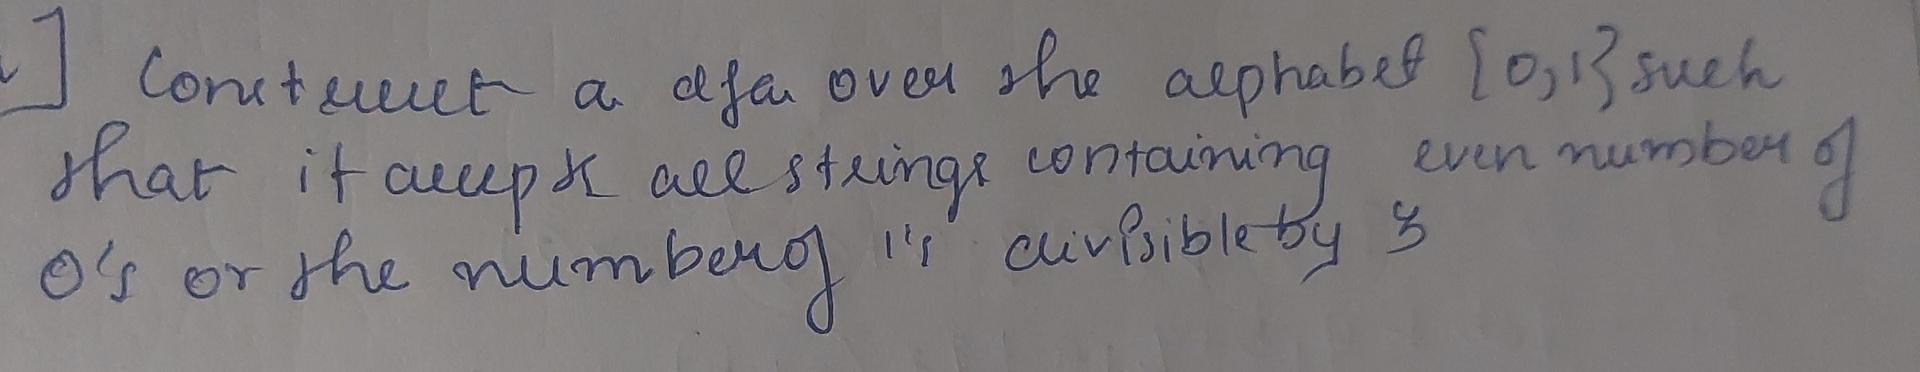 ] Construct a dfa over the alphabet {0,1} such
that it accepts all strings containing even number of
0's or the number of 1's divisible by 3